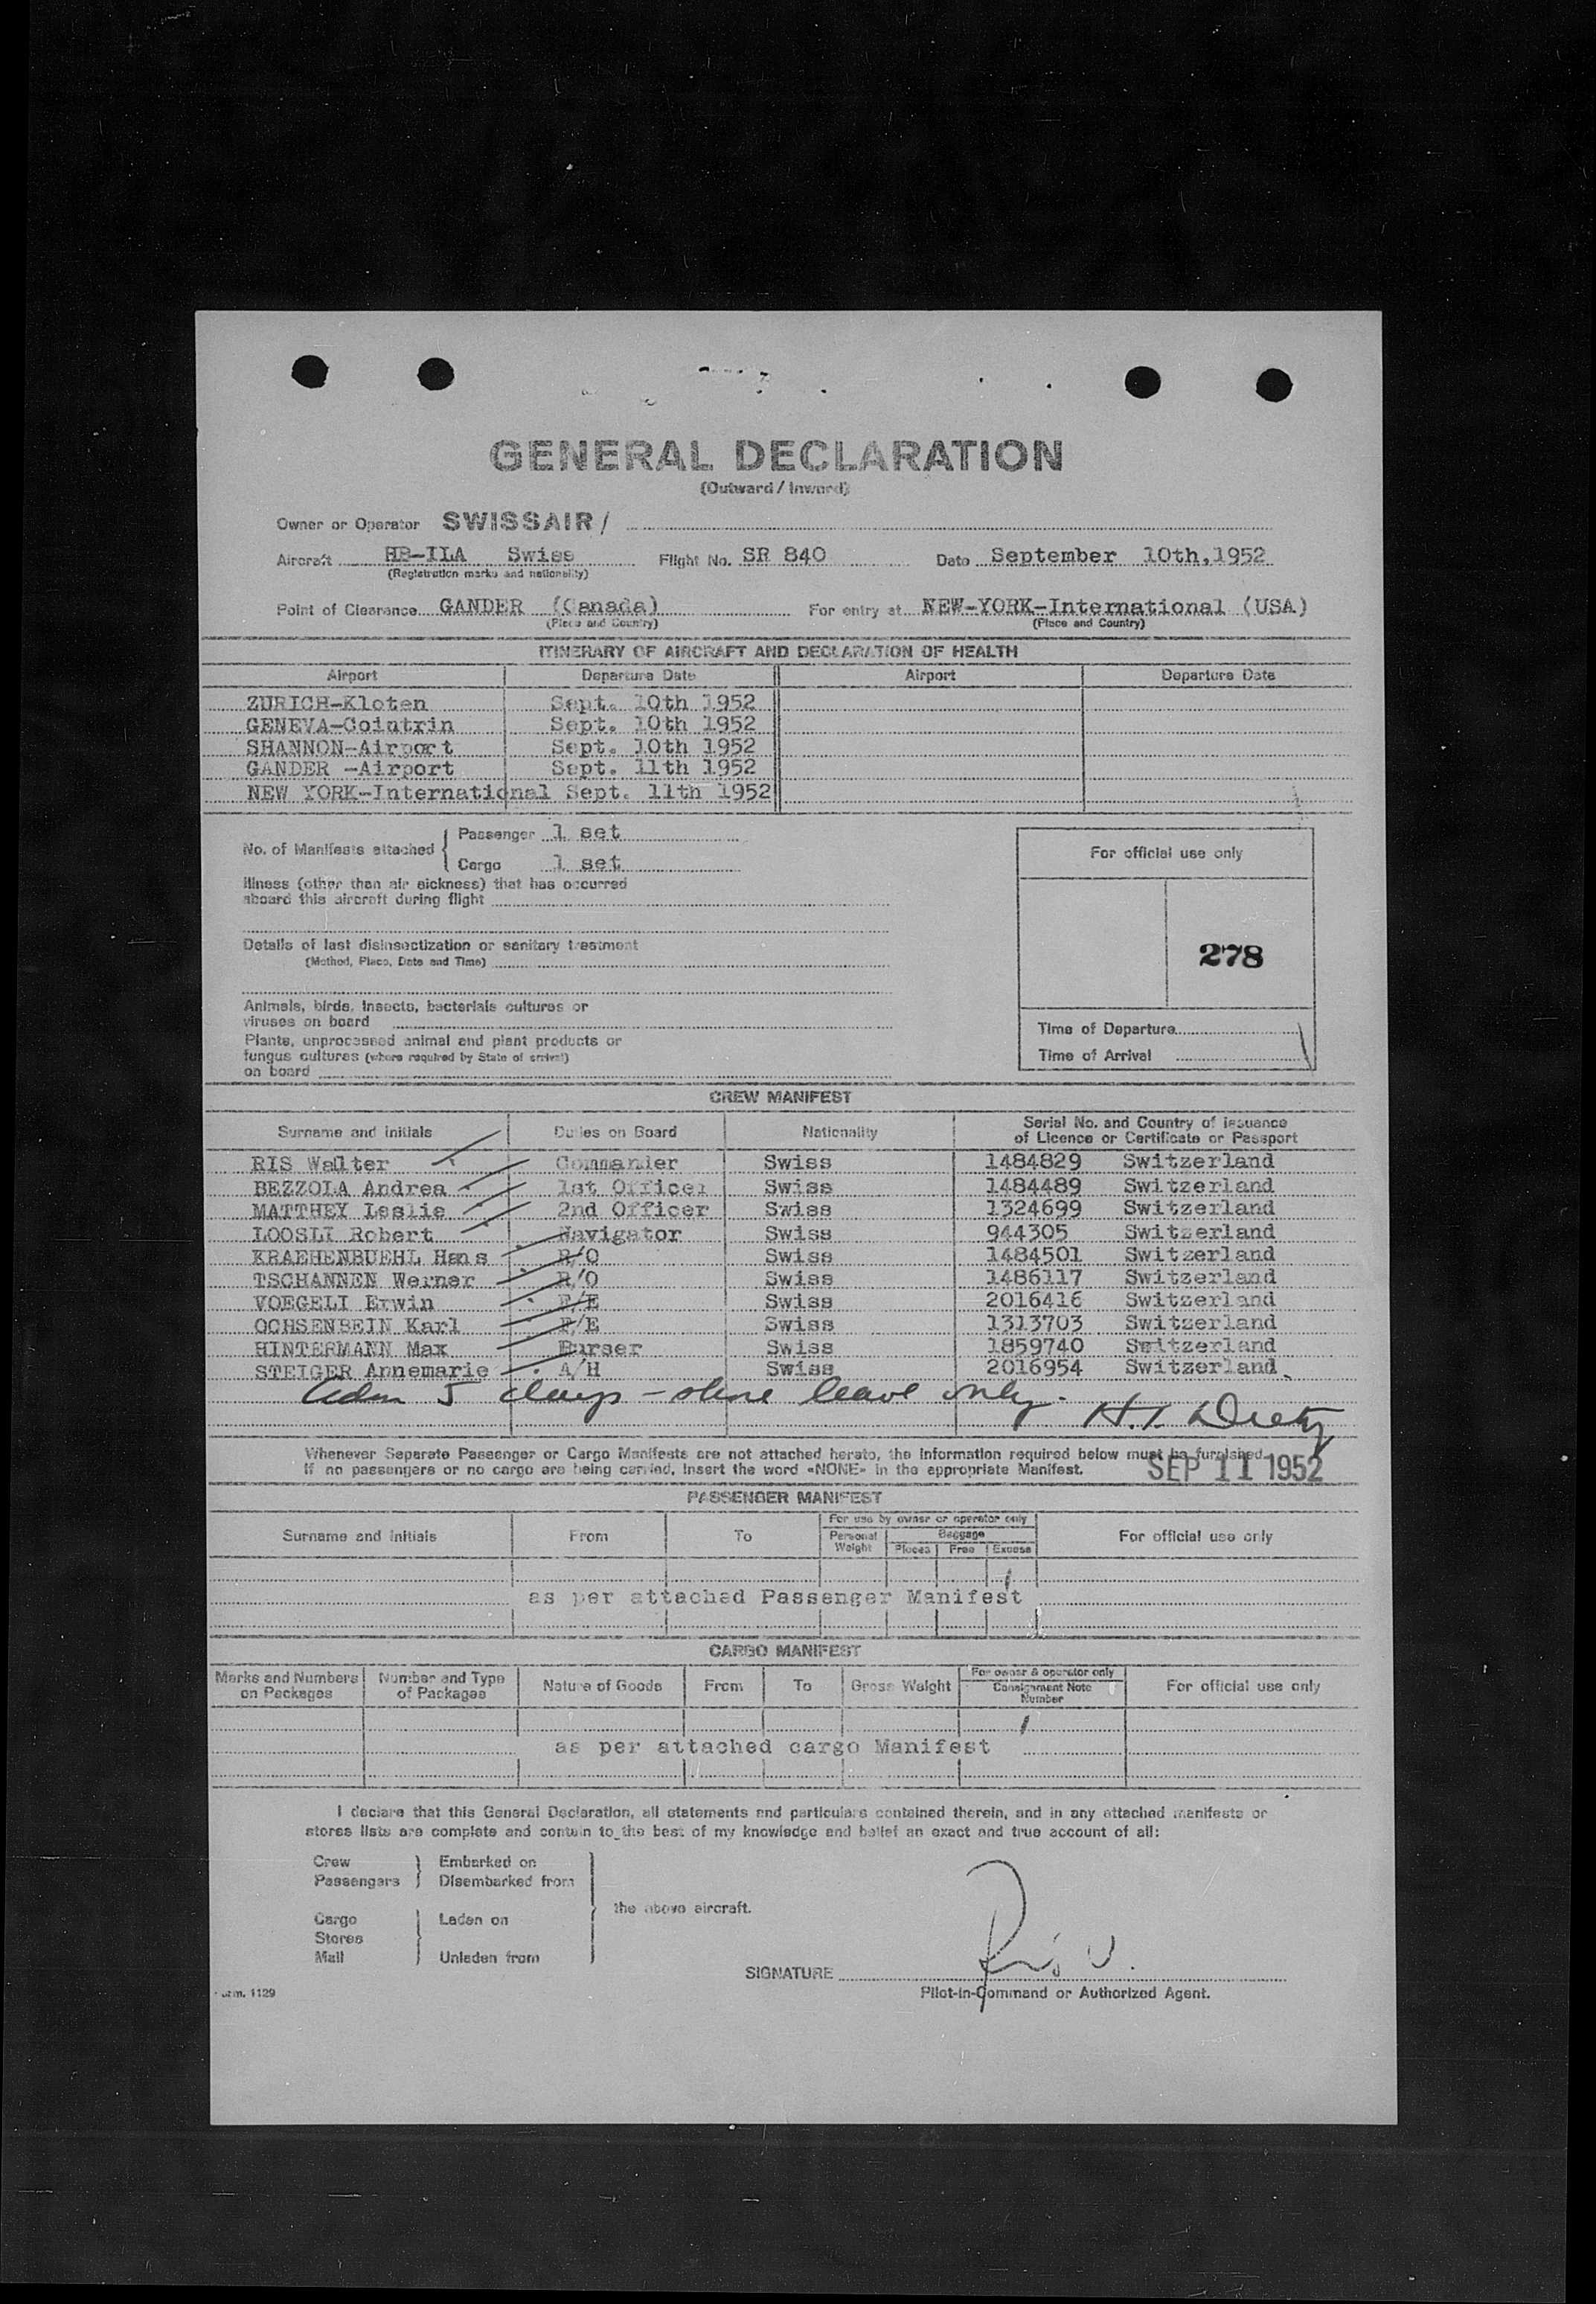 GENERAL DECLARATION
(Outward / Inward)
Owner or Operator SWISSAIR /
Aircraft HB-ILA Swiss Flight No. SR 840 Date September 10th, 1952
(Registration marks and nationality)
Point of Clearance GANDER (Canada) For entry at NEW-YORK-International (USA)
(Place and Country) (Place and Country)
ITINERARY OF AIRCRAFT AND DECLARATION OF HEALTH
Airport Departure Date Airport Departure Date
ZURICH-Kloten Sept. 10th 1952
GENEVA-Cointrin Sept. 10th 1952
SHANNON-Airport Sept. 10th 1952
GANDER -Airport Sept. 11th 1952
NEW YORK-International Sept. 11th 1952
No. of Manifests attached { Passenger 1 set
Cargo 1 set
For official use only
Illness (other than air sickness) that has occurred
aboard this aircraft during flight
Details of last disinsectization or sanitary treatment
(Method, Place, Date and Time)
278
Animals, birds, insects, bacterials cultures or
viruses on board
Plants, unprocessed animal and plant products or
fungus cultures (where required by State of arrival)
on board
Time of Departure
Time of Arrival
CREW MANIFEST
Surname and initials Duties on Board Nationality Serial No. and Country of issuance
of Licence or Certificate or Passport
RIS Walter Commander Swiss 1484829 Switzerland
BEZZOLA Andrea 1st Officer Swiss 1484489 Switzerland
MATTHEY Leslie 2nd Officer Swiss 1324699 Switzerland
LOOSLI Robert Navigator Swiss 944305 Switzerland
KRAEHENBUEHL Hans R/O Swiss 1484501 Switzerland
TSCHANNEN Werner R/O Swiss 1486117 Switzerland
VOEGELI Erwin F/E Swiss 2016416 Switzerland
OCHSENBEIN Karl F/E Swiss 1313703 Switzerland
HINTERMANN Max Purser Swiss 1859740 Switzerland
STEIGER Annemarie A/H Swiss 2016954 Switzerland
Adm 5 days - shore leave only.
H.
Whenever Separate Passenger or Cargo Manifests are not attached hereto, the information required below must be furnished.
If no passengers or no cargo are being carried, insert the word «NONE» in the appropriate Manifest.
SEP 11 1952
PASSENGER MANIFEST
Surname and initials From To For use by owner or operator only For official use only
Personal Weight Baggage
Pieces Free Excess
as per attached Passenger Manifest
CARGO MANIFEST
Marks and Numbers on Packages Number and Type of Packages Nature of Goods From To Gross Weight For owner & operator only Consignment Note Number For official use only
as per attached cargo Manifest
I declare that this General Declaration, all statements and particulars contained therein, and in any attached manifests or
stores lists are complete and contain to the best of my knowledge and belief an exact and true account of all:
Crew } Embarked on
Passengers } Disembarked from
the above aircraft.
Cargo } Laden on
Stores
Mail } Unladen from
SIGNATURE Ris W.
Pilot-in-Command or Authorized Agent.
Form. 1129